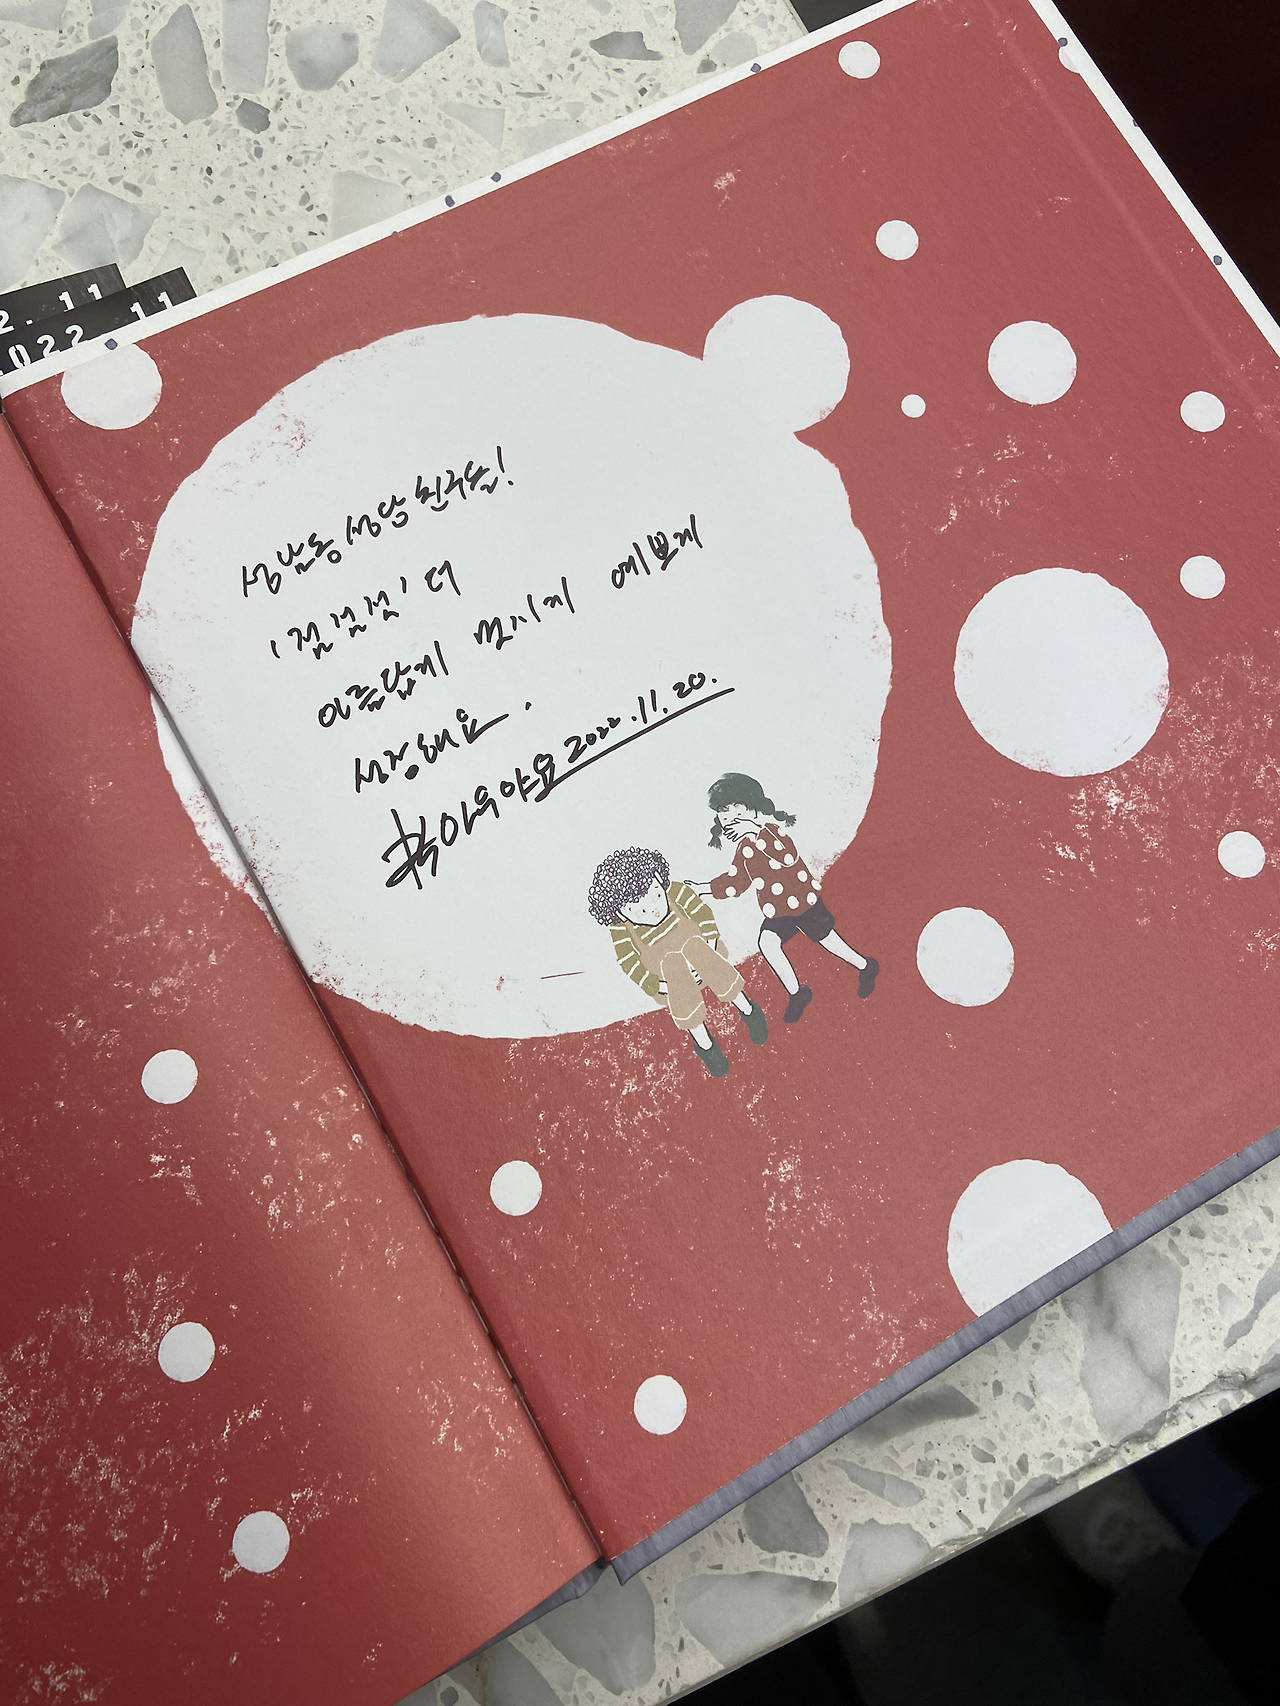 2.11
022.11
성남동 성당 친구들!
'점점점' 더
아름답게 멋지게 예쁘게
성장해요.
2022.11.20.